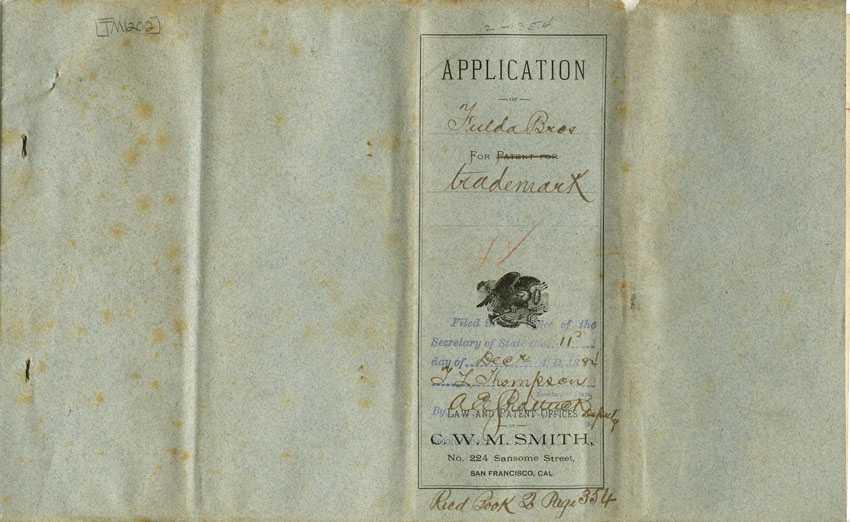 [TM1202]
2-354
APPLICATION
— OF —
Fulda Bros
FOR PATENT FOR
trademark
Filed in office of the
Secretary of State the 11
day of Decr A. D. 1884
T L Thompson
Secretary of State
By Deputy
LAW AND PATENT OFFICES
— OF —
C. W. M. SMITH,
No. 224 Sansome Street,
SAN FRANCISCO, CAL.
Recd Book 2 Page 354